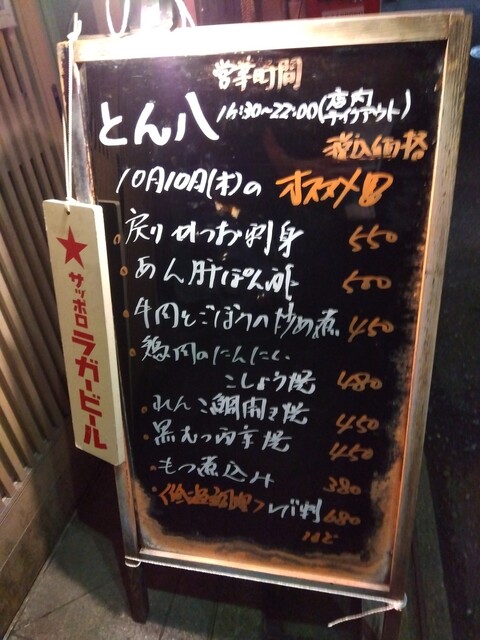 営業時間
とん八 16:30~22:00(店内テイクアウト)
税込価格
10月10日(木)の オススメ
戻りかつお刺身 550
あん肝ぽん酢 500
牛肉とごぼうの炒め煮 450
鶏肉のにんにく
こしょう焼 480
れんこ鯛開き焼 450
黒むつ西京焼 450
もつ煮込み 380
レバ刺 480
ほど
サッポロ
ラガービール